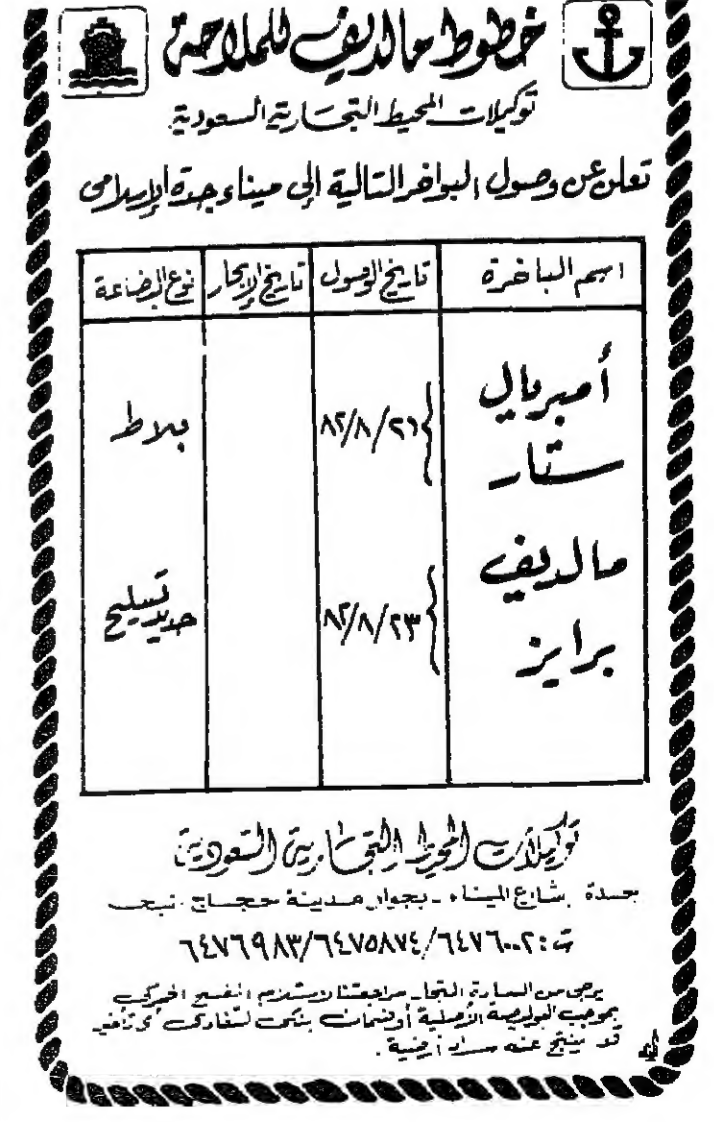 خطوط مالديف للملاحة
توكيلات المحيط التجارية السعودية
تعلن عن وصول البواخر التالية إلى ميناء جدة الإسلامى
اسم الباخرة تاريخ الوصول تاريخ الإبحار نوع البضاعة
أمبريال ٨٢/٨/٢١ بلاط
ستار
مالديف ٨٢/٨/٢٣ حديد تسليح
برايز
توكيلات المحيط التجارية السعودية
جدة شارع الميناء - بجوار مدينة حجاج
ت: ٦٤٧٦٠٠٢/٦٤٧٥٨٧٤/٦٤٧٦٩٨٣
يرجى من السادة التجار مراجعتنا لاستلام الفسح الجمركى
بموجب البوليصة الأصلية أوضمان بنكى لتفادى أى تأخير
قد ينتج عنه سداد أرضية .